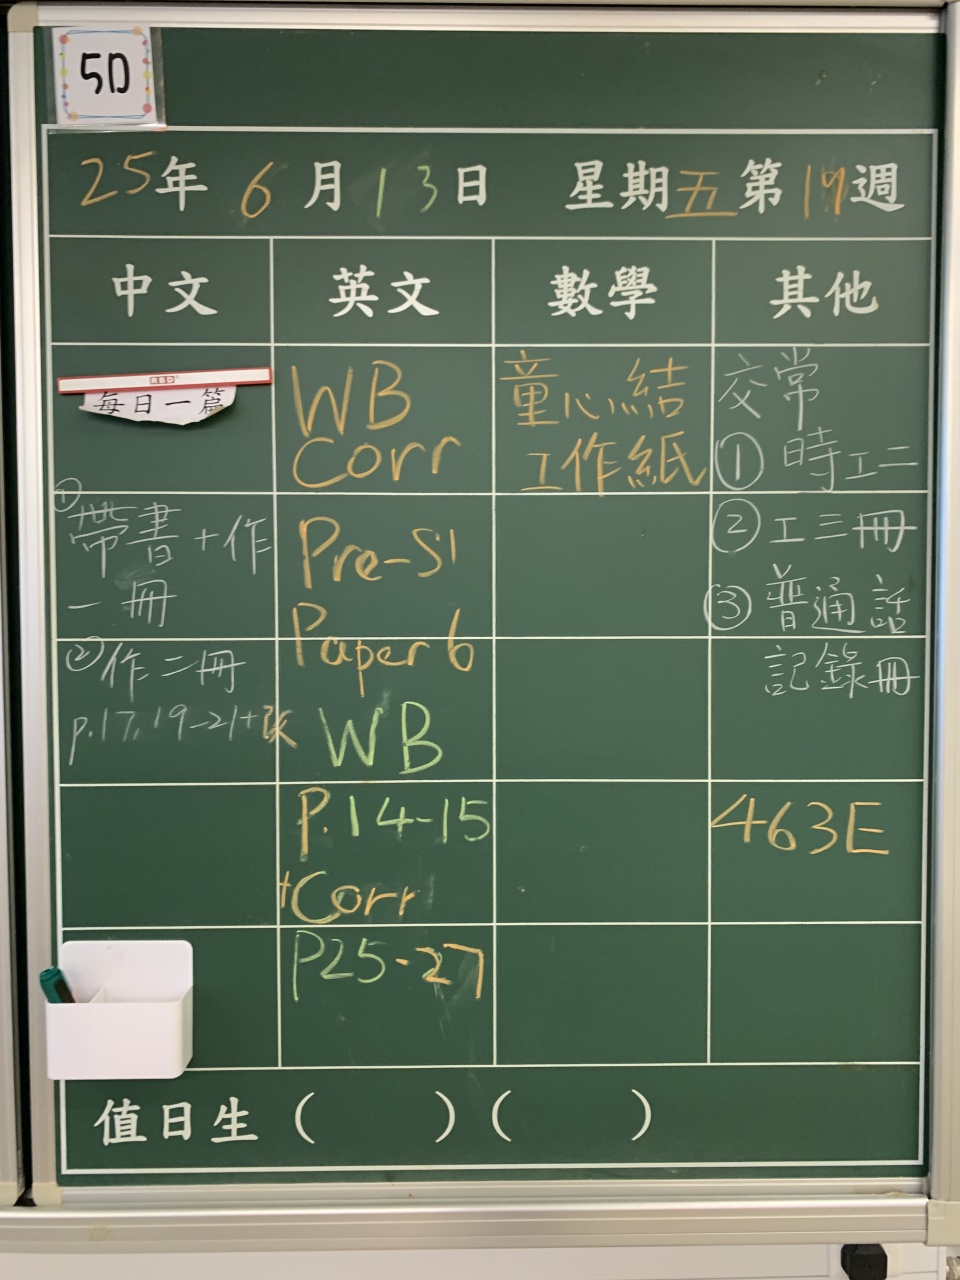 5D
25年 6月13日 星期五第19週
中文 英文 數學 其他
RBD
每日一篇
①
帶書+作
一冊
②作二冊
p.17, 19-21+改
WB
Corr
Pre-S1
Paper 6
WB
P.14-15
+Corr
P25-27
童心結
工作紙
交常
① 時工二
② 工三冊
③ 普通話
記錄冊
463E
值日生 ( ) ( )